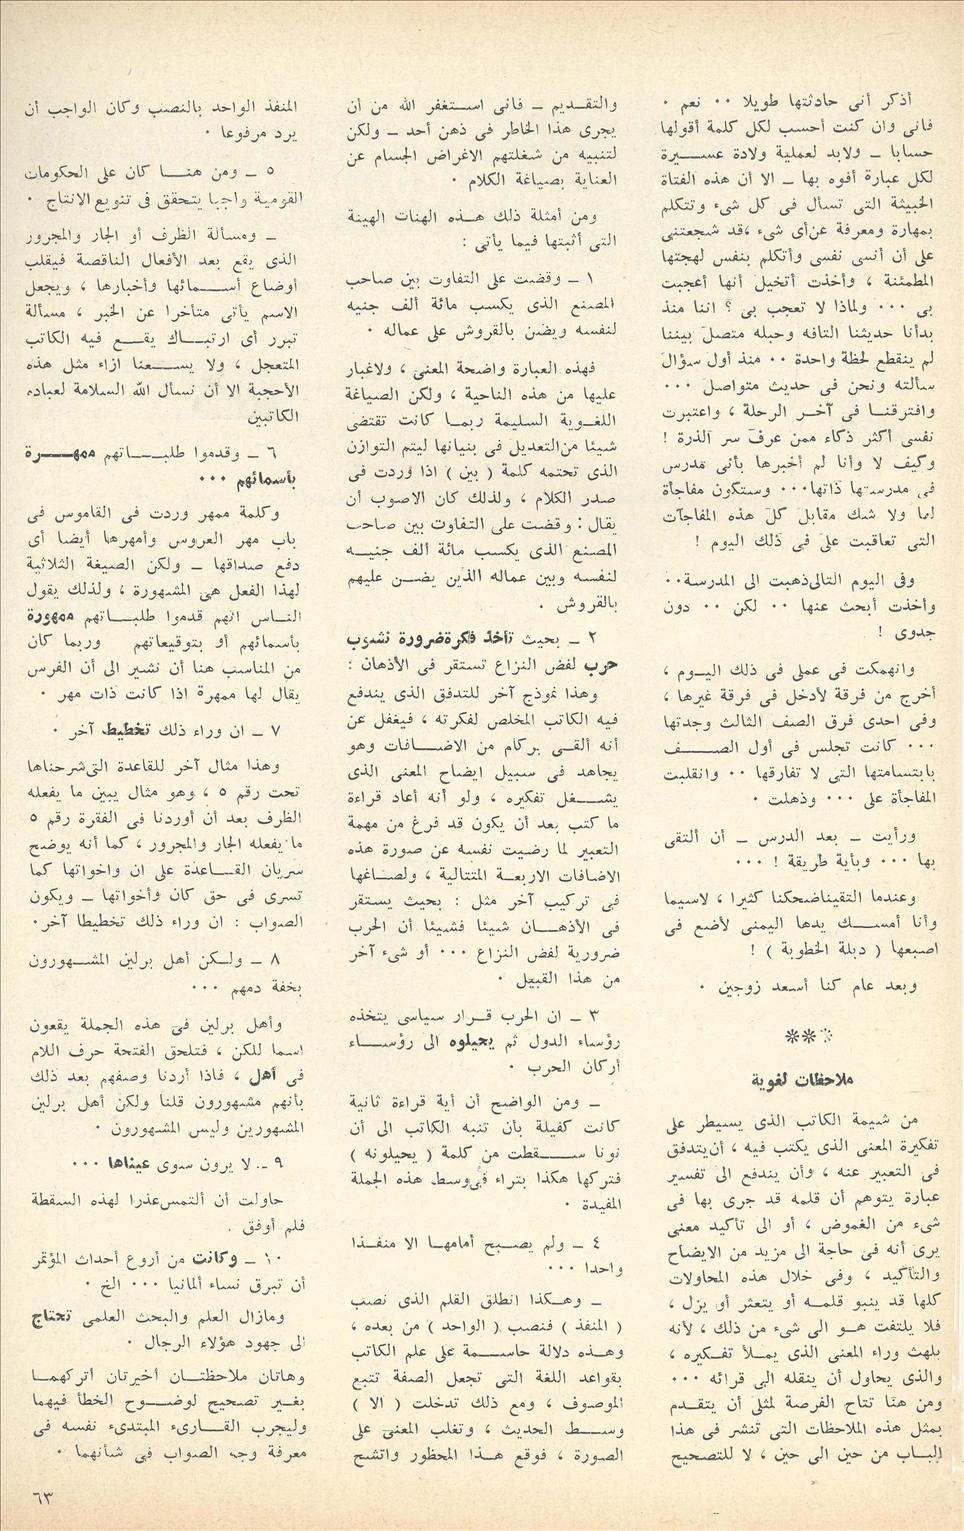 أذكر أنى حادثتها طويلا ٠٠ نعم ٠
فانى وان كنت أحسب لكل كلمة أقولها
حسابا ـ ولابد لعملية ولادة عسيرة
لكل عبارة أفوه بها ـ الا أن هذه الفتاة
الخبيثة التى تسأل فى كل شىء وتتكلم
بمهارة ومعرفة عن أى شىء ، قد شجعتنى
على أن أنسى نفسى وأتكلم بنفس لهجتها
المطمئنة ، وأخذت أتخيل أنها أعجبت
بى ٠٠٠ ولماذا لا تعجب بى ؟ اننا منذ
بدأنا حديثنا التافه وحبله متصل بيننا
لم ينقطع لحظة واحدة ٠٠ منذ أول سؤال
سألته ونحن فى حديث متواصل ٠٠٠
وافترقنا فى آخر الرحلة ، واعتبرت
نفسى أكثر ذكاء ممن عرف سر الذرة !
وكيف لا وأنا لم أخبرها بأنى مدرس
فى مدرستها ذاتها ٠٠٠ وستكون مفاجأة
لها ولا شك مقابل كل هذه المفاجآت
التى تعاقبت على فى ذلك اليوم !
وفى اليوم التالى ذهبت الى المدرسة ٠٠
وأخذت أبحث عنها ٠٠ لكن ٠٠ دون
جدوى !
وانهمكت فى عملى فى ذلك اليوم ،
أخرج من فرقة لأدخل فى فرقة غيرها ،
وفى احدى فرق الصف الثالث وجدتها
٠٠٠ كانت تجلس فى أول الصف
بابتسامتها التى لا تفارقها ٠٠ وانقلبت
المفاجأة على ٠٠٠ وذهلت ٠
ورأيت ـ بعد الدرس ـ أن ألتقى
بها ٠٠٠ وبأية طريقة ! ٠٠٠
وعندما التقينا ضحكنا كثيرا ، لاسيما
وأنا أمسك يدها اليمنى لأضع فى
اصبعها ( دبلة الخطوبة ) !
وبعد عام كنا أسعد زوجين ٠
***
ملاحظات لغوية
من شيمة الكاتب الذى يسيطر على
تفكيرة المعنى الذى يكتب فيه ، أن يتدفق
فى التعبير عنه ، وأن يندفع الى تفسير
عبارة يتوهم أن قلمه قد جرى بها فى
شىء من الغموض ، أو الى تأكيد معنى
يرى أنه فى حاجة الى مزيد من الايضاح
والتأكيد ، وفى خلال هذه المحاولات
كلها قد ينبو قلمه أو يتعثر أو يزل ،
فلا يلتفت هو الى شىء من ذلك ، لأنه
يلهث وراء المعنى الذى يملأ تفكيره ،
والذى يحاول أن ينقله الى قرائه ٠٠٠
ومن هنا تتاح الفرصة لمثلى أن يتقدم
بمثل هذه الملاحظات التى تنشر فى هذا
الباب من حين الى حين ، لا للتصحيح
والتقديم ـ فانى استغفر الله من أن
يجرى هذا الخاطر فى ذهن أحد ـ ولكن
لتنبيه من شغلتهم الاغراض الجسام عن
العناية بصياغة الكلام ٠
ومن أمثلة ذلك هذه الهنات الهينة
التى أثبتها فيما يأتى :
١ ـ وقضت على التفاوت بين صاحب
المصنع الذى يكسب مائة ألف جنيه
لنفسه ويضن بالقروش على عماله ٠
فهذه العبارة واضحة المعنى ، ولاغبار
عليها من هذه الناحية ، ولكن الصياغة
اللغوية السليمة ربما كانت تقتضى
شيئا من التعديل فى بنيانها ليتم التوازن
الذى تحتمه كلمة ( بين ) اذا وردت فى
صدر الكلام ، ولذلك كان الاصوب أن
يقال : وقضت على التفاوت بين صاحب
المصنع الذى يكسب مائة الف جنيه
لنفسه وبين عماله الذين يضن عليهم
بالقروش ٠
٢ ـ بحيث تأخذ فكرة ضرورة نشوب
حرب لفض النزاع تستقر فى الأذهان :
وهذا نموذج آخر للتدفق الذى يندفع
فيه الكاتب المخلص لفكرته ، فيغفل عن
أنه ألقى بركام من الاضافات وهو
يجاهد فى سبيل ايضاح المعنى الذى
يشغل تفكيره ، ولو أنه أعاد قراءة
ما كتب بعد أن يكون قد فرغ من مهمة
التعبير لما رضيت نفسه عن صورة هذه
الاضافات الاربعة المتتالية ، ولصاغها
فى تركيب آخر مثل : بحيث يستقر
فى الأذهان شيئا فشيئا أن الحرب
ضرورية لفض النزاع ٠٠٠ أو شىء آخر
من هذا القبيل ٠
٣ ـ ان الحرب قرار سياسى يتخذه
رؤساء الدول ثم يحيلوه الى رؤساء
أركان الحرب ٠
ـ ومن الواضح أن أية قراءة ثانية
كانت كفيلة بأن تنبه الكاتب الى أن
نونا سقطت من كلمة ( يحيلونه )
فتركها هكذا بتراء فى وسط هذه الجملة
المفيدة ٠
٤ ـ ولم يصبح أمامها الا منفذا
واحدا ٠٠٠
ـ وهكذا انطلق القلم الذى نصب
( المنفذ ) فنصب ( الواحد ) من بعده ،
وهذه دلالة حاسمة على علم الكاتب
بقواعد اللغة التى تجعل الصفة تتبع
الموصوف ، ومع ذلك تدخلت ( الا )
وسط الحديث ، وتغلب المعنى على
الصورة ، فوقع هذا المحظور واتشح
المنفذ الواحد بالنصب وكان الواجب أن
يرد مرفوعا ٠
٥ ـ ومن هنا كان على الحكومات
القومية واجبا يتحقق فى تنويع الانتاج ٠
ـ ومسألة الظرف أو الجار والمجرور
الذى يقع بعد الأفعال الناقصة فيقلب
أوضاع أسمائها وأخبارها ، ويجعل
الاسم يأتى متأخرا عن الخبر ، مسألة
تبرر أى ارتباك يقع فيه الكاتب
المتعجل ، ولا يسعنا ازاء مثل هذه
الأحجبة الا أن نسأل الله السلامة لعباده
الكاتبين
٦ ـ وقدموا طلباتهم ممهرة
بأسمائهم ٠٠٠
وكلمة ممهر وردت فى القاموس فى
باب مهر العروس وأمهرها أيضا أى
دفع صداقها ـ ولكن الصيغة الثلاثية
لهذا الفعل هى المشهورة ، ولذلك يقول
الناس انهم قدموا طلباتهم ممهورة
بأسمائهم أو بتوقيعاتهم وربما كان
من المناسب هنا أن نشير الى أن الفرس
يقال لها ممهرة اذا كانت ذات مهر ٠
٧ ـ ان وراء ذلك تخطيط آخر ٠
وهذا مثال آخر للقاعدة التى شرحناها
تحت رقم ٥ ، وهو مثال يبين ما يفعله
الظرف بعد أن أوردنا فى الفقرة رقم ٥
ما يفعله الجار والمجرور ، كما أنه يوضح
سريان القاعدة على ان واخواتها كما
تسرى فى حق كان وأخواتها ـ ويكون
الصواب : ان وراء ذلك تخطيطا آخر ٠
٨ ـ ولكن أهل برلين المشهورون
بخفة دمهم ٠٠٠
وأهل برلين فى هذه الجملة يقعون
اسما للكن ، فتلحق الفتحة حرف اللام
فى أهل ، فاذا أردنا وصفهم بعد ذلك
بأنهم مشهورون قلنا ولكن أهل برلين
المشهورين وليس المشهورون ٠
٩ ـ لا يرون سوى عيناها ٠٠٠
حاولت أن ألتمس عذرا لهذه السقطة
فلم أوفق ٠
١٠ ـ وكانت من أروع أحداث المؤتمر
أن تبرق نساء ألمانيا ٠٠٠ الخ ٠
ومازال العلم والبحث العلمى تحتاج
الى جهود هؤلاء الرجال ٠
وهاتان ملاحظتان أخيرتان أتركهما
بغير تصحيح لوضوح الخطأ فيهما
وليجرب القارىء المبتدىء نفسه فى
معرفة وجه الصواب فى شأنهما ٠
٦٣